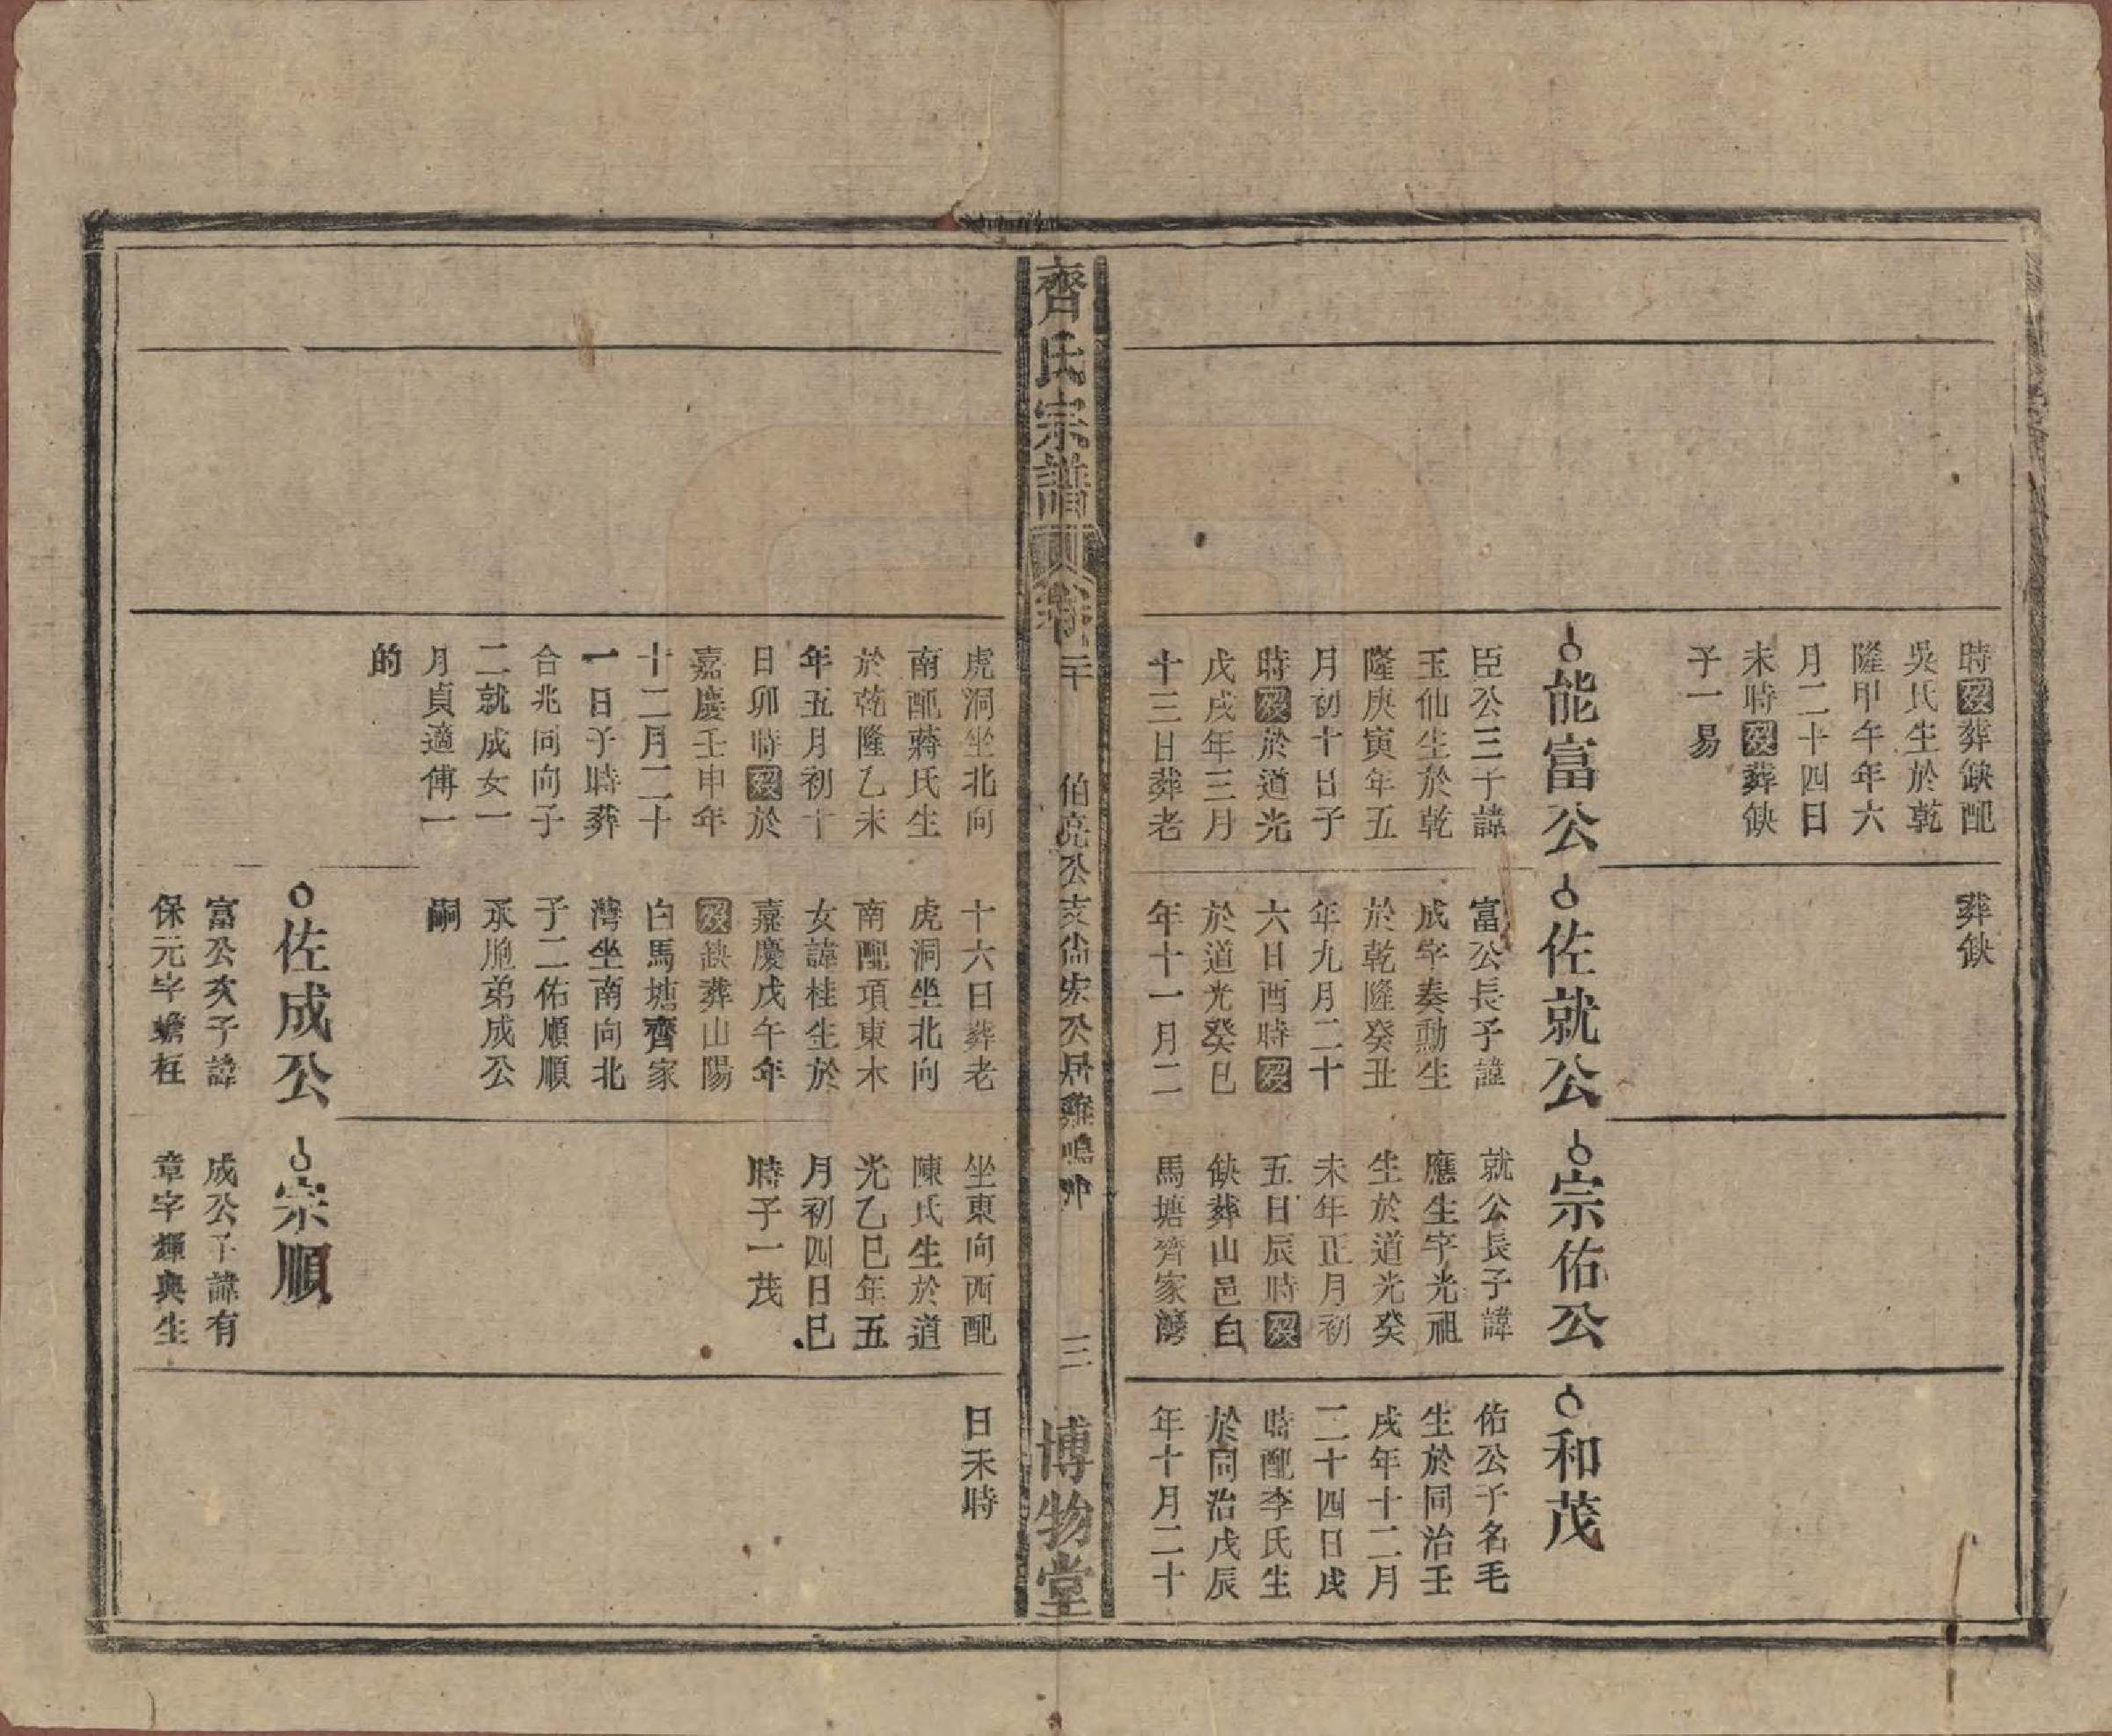 時歿葬缺配
吳氏生於乾
隆甲午年六
月二十四日
未時歿葬缺
子一易
能富公
臣公三子諱
玉仙生於乾
隆庚寅年五
月初十日子
時歿於道光
戊戌年三月
十三日葬老
虎洞坐北向
南配蔣氏生
於乾隆乙未
年五月初十
日卯時歿於
嘉慶壬申年
十二月二十
一日子時葬
合兆同向子
二就成女一
月貞適傅一
的
葬缺
佐就公
富公長子諱
成字奏勳生
於乾隆癸丑
年九月二十
六日酉時歿
於道光癸巳
年十一月二
十六日葬老
虎洞坐北向
南配項東木
女諱桂生於
嘉慶戊午年
歿缺葬山陽
白馬塘齊家
灣坐南向北
子二佑順順
承胞弟成公
嗣
佐成公
富公次子諱
保元字蟾枉
宗佑公
就公長子諱
應生字光祖
生於道光癸
未年正月初
五日辰時歿
缺葬山邑白
馬塘齊家灣
坐東向西配
陳氏生於道
光乙巳年五
月初四日巳
時子一茂
宗順
成公子諱有
章字輝典生
和茂
佑公子名毛
生於同治壬
戌年十二月
二十四日戌
時配李氏生
於同治戊辰
年十月二十
日未時
齊氏宗譜
卷二十
伯亮公支尙宏公居雞鳴冲
三
博物堂